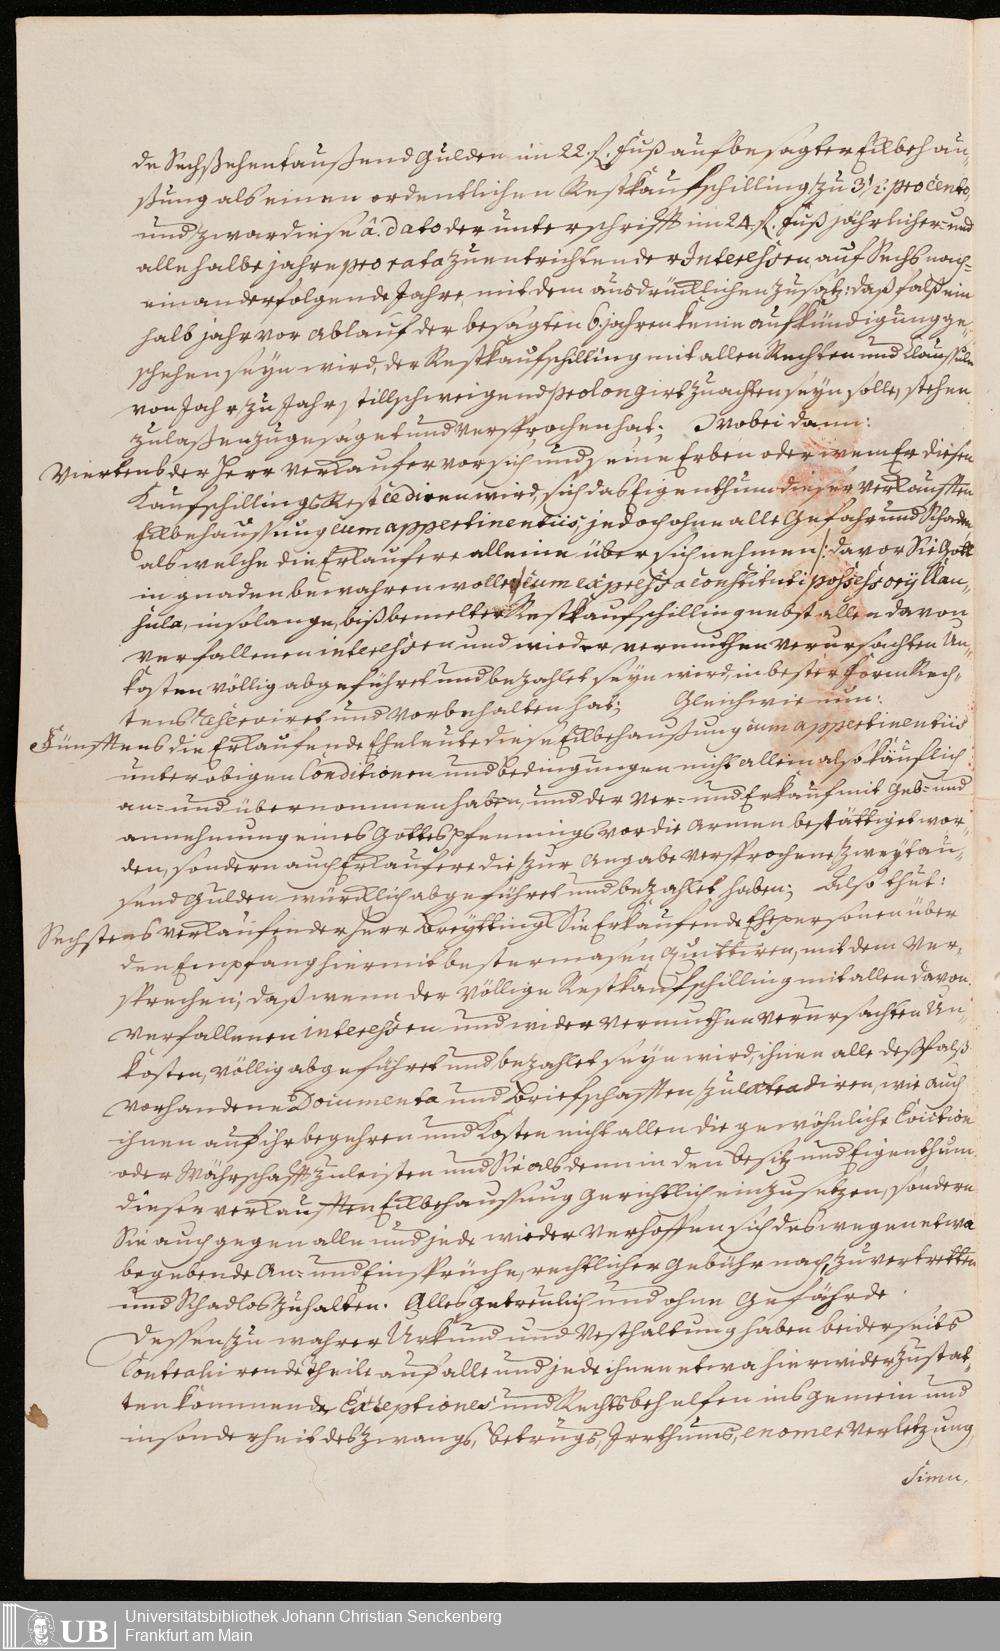 de Sechßehentaußend Gulden im 22. f. Fuß auf besagter Eilbehau-
ßung als einen ordentlichen Restkaufschilling zu 3 1/2 procento,
und zwar diese â. dato der unterschrifft im 24. f. Fuß jährlicher- und
alle halbe jahre pro rata zu entrichtender Interessen, auf Sechs nach-
einander folgende Jahre, mit dem ausdrücklichen Zusatz: daß falß ein
halb jahr vor Ablauf der besagten 6. jahren keine aufkündigung ge-
schehen seyn wird, der Restkaufschilling mit allen Rechten und Clausuln
von Jahr zu Jahr, stillschweigend prolongirt zu achten seyn solle, stehen
zu laßen zugesaget und versprochen hat; Wobei dann:
Viertens der Herr Verkaufer vor sich und seine Erben oder wem Er diesen
Kaufschillings Rest cediren wird, sich das Eigenthum dieser verkaufften
Eilbehaussung cum appertinentiis, jedoch ohne alle Gefahr und Schaden
als welche die Erkaufere alleine über sich nehmen /: davor Sie Gott
in gnaden bewahren wolle :/ cum expressa constituti possessorÿ Clau-
sula, in solange, biß bemelter Restkaufschilling nebst allen davon
verfallenen interessen und wieder vermuthen verursachten Un-
kosten völlig abgeführet und bezahlet seyn wird, in bester form Rech-
tens reserviret und vorbehalten hat; Gleichwie nun:
Fünfftens die Erkaufende Eheleute diese Eilbehaußung cum appertinentiis
unter obigen Conditionen und Bedingungen nicht allein also käuflich
an- und übernommen haben, und der Ver- und Erkauf mit Geb- und
annehmung eines Gottespfennings vor die Armen bestättiget wor-
den, sondern auch Erkaufere die zur Angabe versprochene Zweytau-
send Gulden würcklich abgeführet und bezahlet haben; Also thut:
Sechstens Verkaufender Herr Breytting Sie Erkaufende Ehepersonen über
den Empfang hiermit bestermasen Quittiren, mit dem Ver-
sprechen, daß wenn der völlige Restkaufschilling mit allen davon
verfallenen interessen und wider vermuthen verursachten Un-
kosten, völlig abgeführet und bezahlet seyn wird, ihnen alle deßfalß
vorhandene Documenta und Briefschafften zu extradiren, wie auch
ihnen auf ihr begehren und Kosten nicht allen die gewöhnliche Eviction
oder Währschafft zu leisten und Sie alsdenn in den Besitz und Eigenthum
dieser verkaufften Eilbehaussung gerichtlich einzusetzen, sondern
Sie auch gegen alle und jede wieder Verhoffen sich deswegen etwa
begebende An- und Einsprüche, rechtlicher Gebühr nach, zu vertretten
und Schadlos zu halten. Alles getreulich und ohne Gefährde.
Dessen zu wahrer Urkund und Vesthaltung haben beiderseits
Contrahirende Theile auf alle und jede ihnen etwa hierwider zu stat-
ten kommende Exceptiones und Rechtsbehelfen ins gemein und
insonderheit des Zwangs, Betrugs, Irrthums, enomer Verletzung,
Simu,
Universitätsbibliothek Johann Christian Senckenberg
Frankfurt am Main
UB